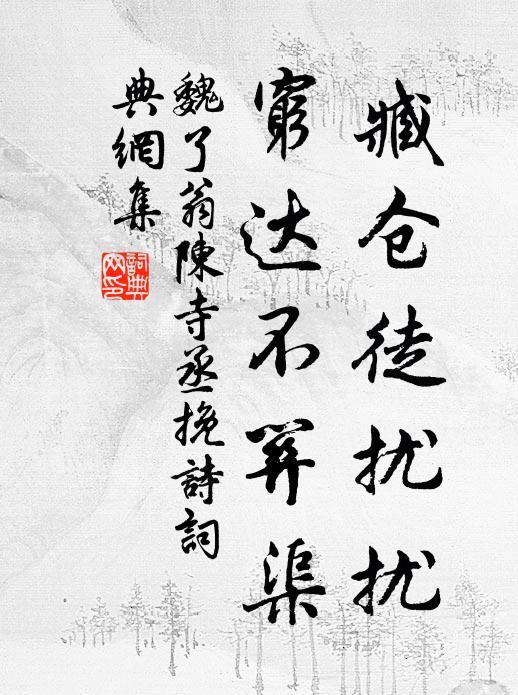 臧仓徒扰扰
窮达不关渠
魏了翁陳寺丞挽詩詞
典網集
詞典網印